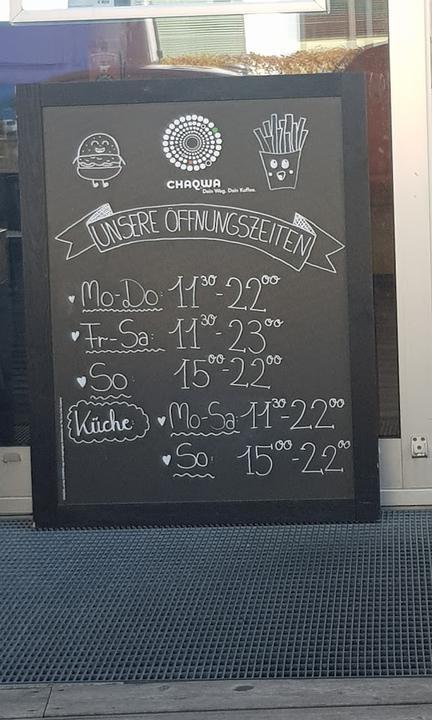 CHAQWA
Dein Weg. Dein Kaffee.
UNSERE ÖFFNUNGSZEITEN
Mo-Do: 11³⁰-22⁰⁰
Fr-Sa: 11³⁰-23⁰⁰
So 15⁰⁰-22⁰⁰
Küche: Mo-Sa: 11³⁰-22⁰⁰
So: 15⁰⁰-22⁰⁰